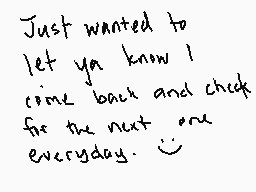 Just wanted to
let ya know I
come back and check
for the next one
everyday. :)